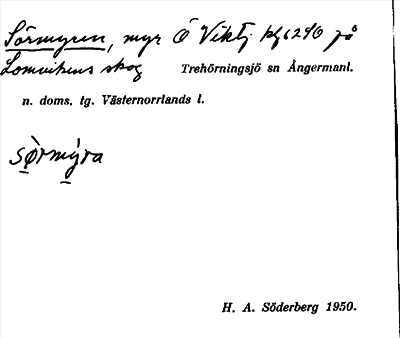 Sörmyren, myr Ö Viktj
på
Lomvikens skog Trehörningsjö sn Ångermanl.
n. doms. tg. Västernorrlands l.
sòrmýra
H. A. Söderberg 1950.